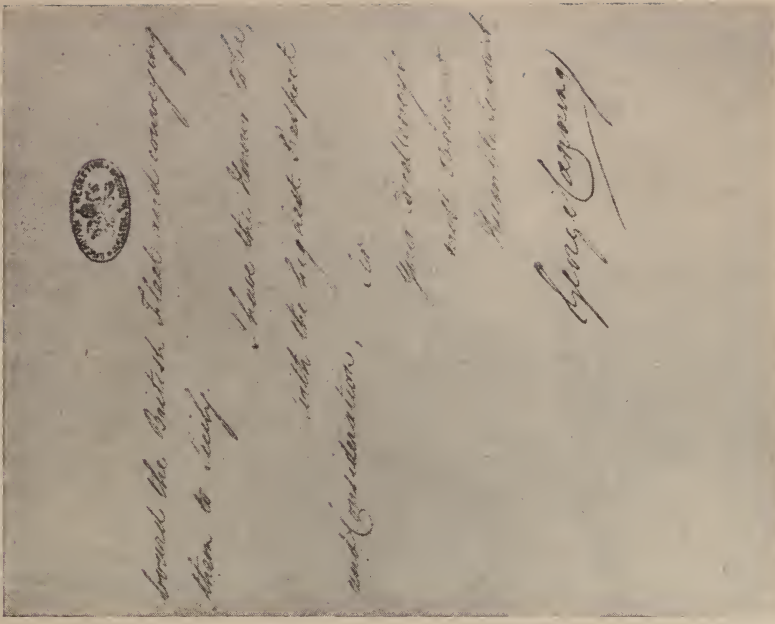 board the British Fleet and conveying
them to Sicily.
I have the Honor to be,
with the highest Respect
and Consideration,
Sir
Your Excellency's
most obedient
Humble Servant
George Canning